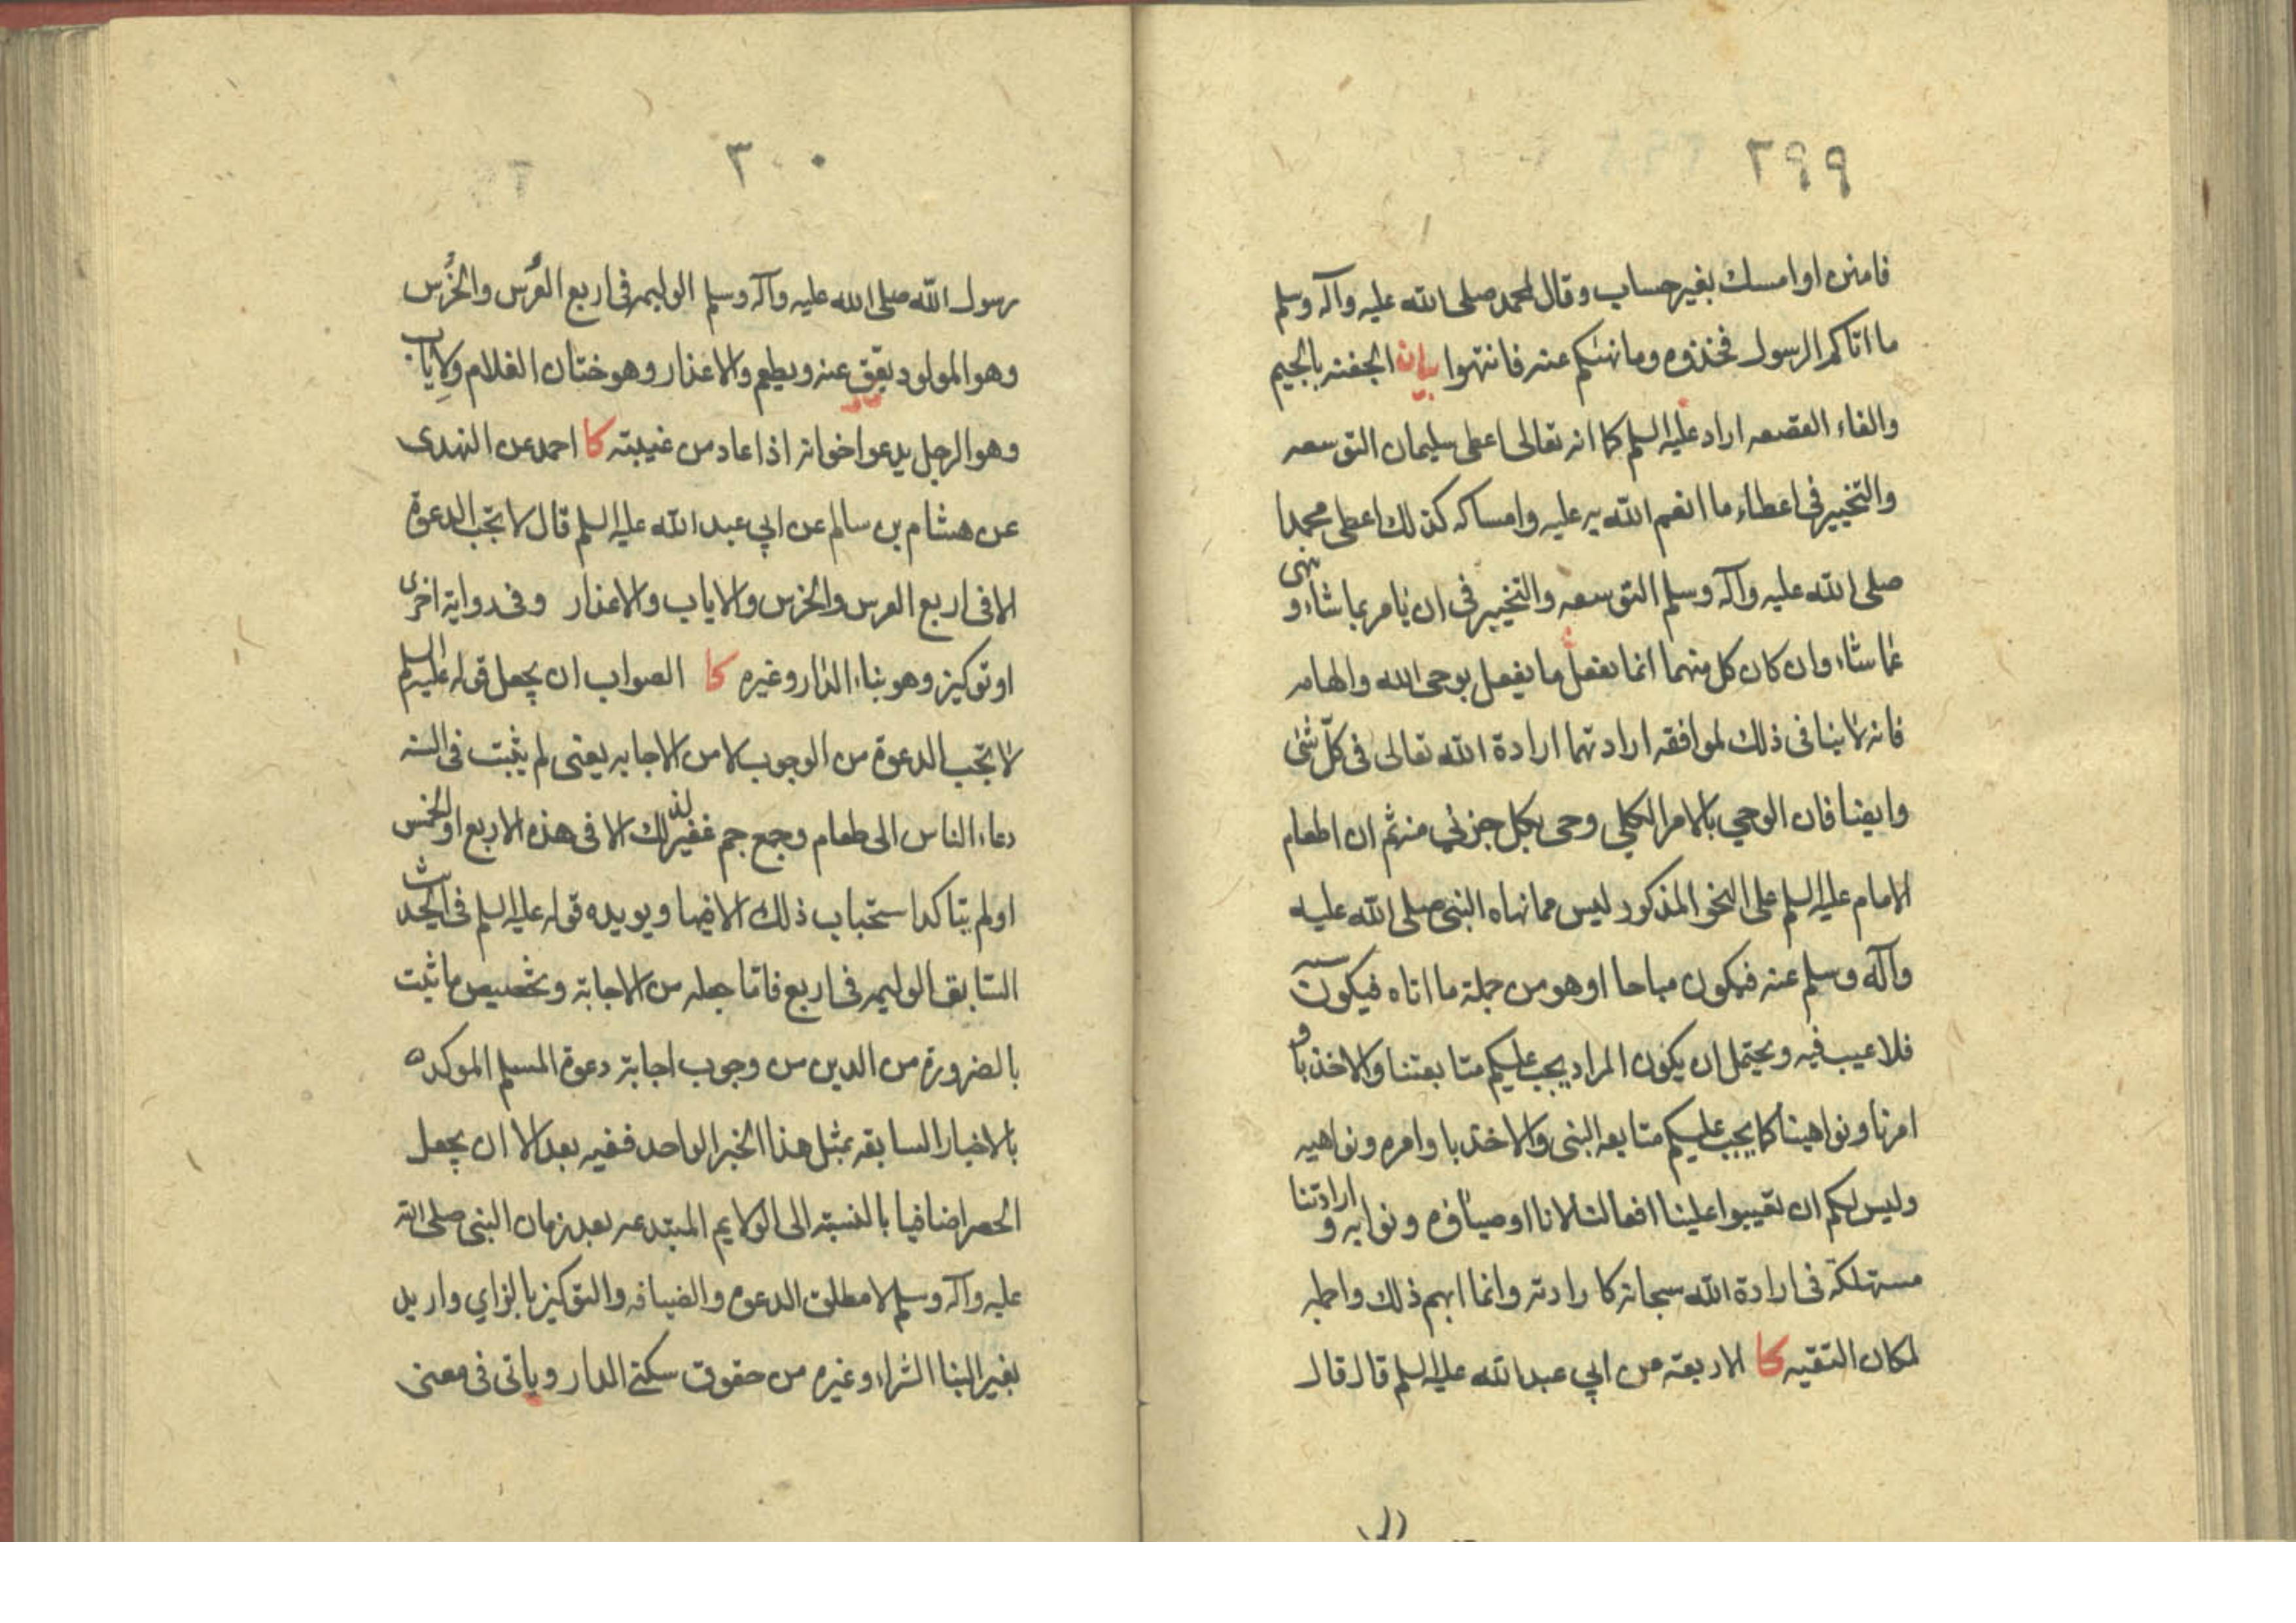 ٢٩٩
فامنن او امسك بغير حساب وقال لمحمد صلى الله عليه وآله وسلم
ما اتاكم الرسول فخذوه وما نهيكم عنه فانتهوا بيان الجفنه بالجيم
والفاء القصعه اراد عليه السلم كما انه تعالى اعطى سليمان التوسعه
والتخيير فى اعطاء ما انعم الله به عليه وامساكه كذلك اعطى محمدا
صلى الله عليه وآله وسلم التوسعه والتخيير فى ان يامر بما شاء و ينهى
عما شاء وان كان كل منهما انما يفعل ما يفعل بوحى الله والهامه
فانه لا ينافى ذلك لموافقه ارادتهما ارادة الله تعالى فى كلّ شئ
وايضا فان الوحي بالامر الكلي وحى بكل جزئي منه ثم ان اطعام
الامام عليه السلم على النحو المذكور ليس مما نهاه النبى صلى الله عليه
وآله وسلم عنه فيكون مباحا او هو من جملة ما اتاه فيكون سنه
فلا عيب فيه ويحتمل ان يكون المراد يجب عليكم متابعتنا والاخذ باو
امرنا ونواهينا كما يجب عليكم متابعه النبى والاخذ باوامره ونواهيه
وليس لكم ان تعيبوا علينا افعالنا لانا اوصياؤه ونوابه و ارادتنا
مستهلكة فى ارادة الله سبحانه كارادته وانما ابهم ذلك واجمله
لمكان التقيه كا الاربعة عن ابي عبد الله عليه السلم قال قال
٣٠٠
رسول الله صلى الله عليه وآله وسلم الوليمه فى اربع العُرس والخُرس
وهو المولود يعقّ عنه ويطعم والاعذار وهو ختان الغلام والاياب
وهو الرجل يدعو اخوانه اذا عاد من غيبته كا احمد عن النهدى
عن هشام بن سالم عن ابي عبد الله عليه السلم قال لا تجب الدعوة
الا فى اربع العرس والخرس والاياب والاعذار وفى رواية اخرى
او توكيز وهو بناء الدار وغيره كا الصواب ان يجعل قوله عليه السلم
لا تجب الدعوة من الوجوب لا من الاجابه يعنى لم يثبت فى السنه
دعاء الناس الى طعام وجمع جم غفير لذلك الا فى هذه الاربع او الخمس
او لم يتاكد استحباب ذلك الا فيها ويويده قوله عليه السلم فى الحديث
السّابق الوليمه فى اربع فامّا جعله من الاجابة وتخصيص ما ثبت
بالضرورة من الدين من وجوب اجابة دعوة المسلم الموكده
بالاخبار السابقه بمثل هذا الخبر الواحد ففيه بعد الا ان يجعل
الحصر اضافيا بالنسبة الى الولايم المبتدعه بعد زمان النبى صلى الله
عليه وآله وسلم لا مطلق الدعوه والضيافه والتوكيز بالزاي واريد
بغير البنا الشراء وغيره من حقوق سكنى الدار وياتى فى معنى